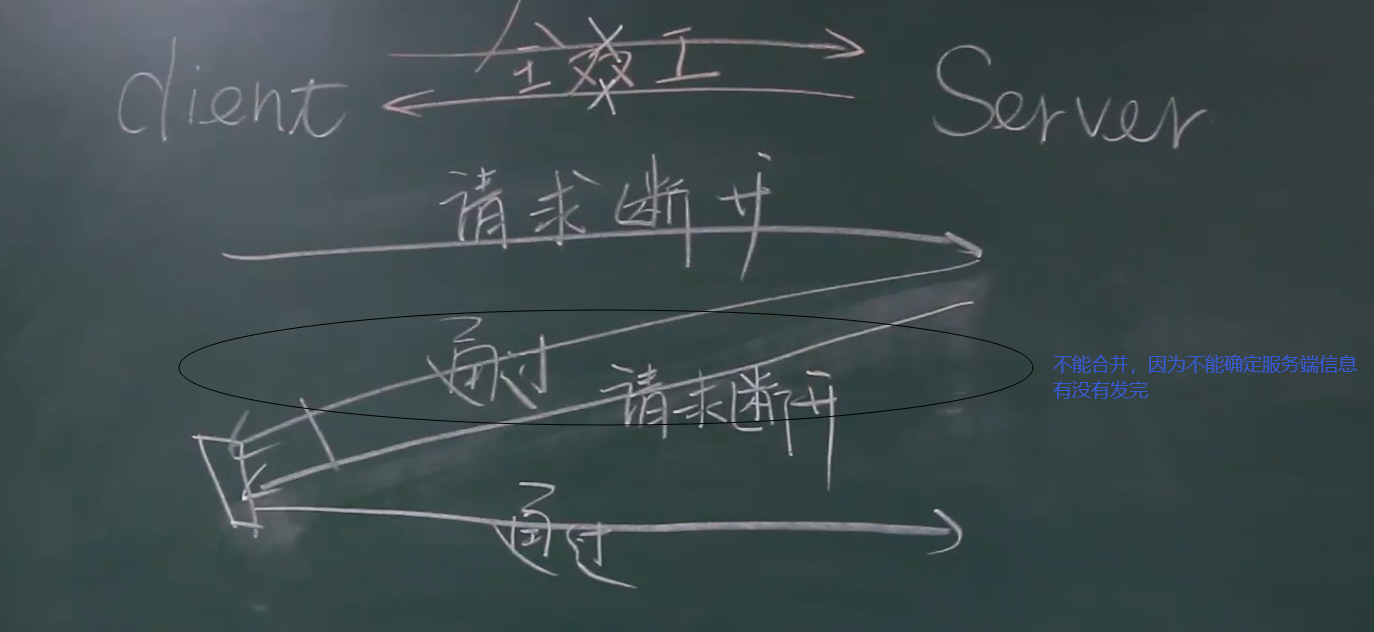 client
全双工
Server
请求断开
通过
请求断开
不能合并，因为不能确定服务端信息
有没有发完
通过